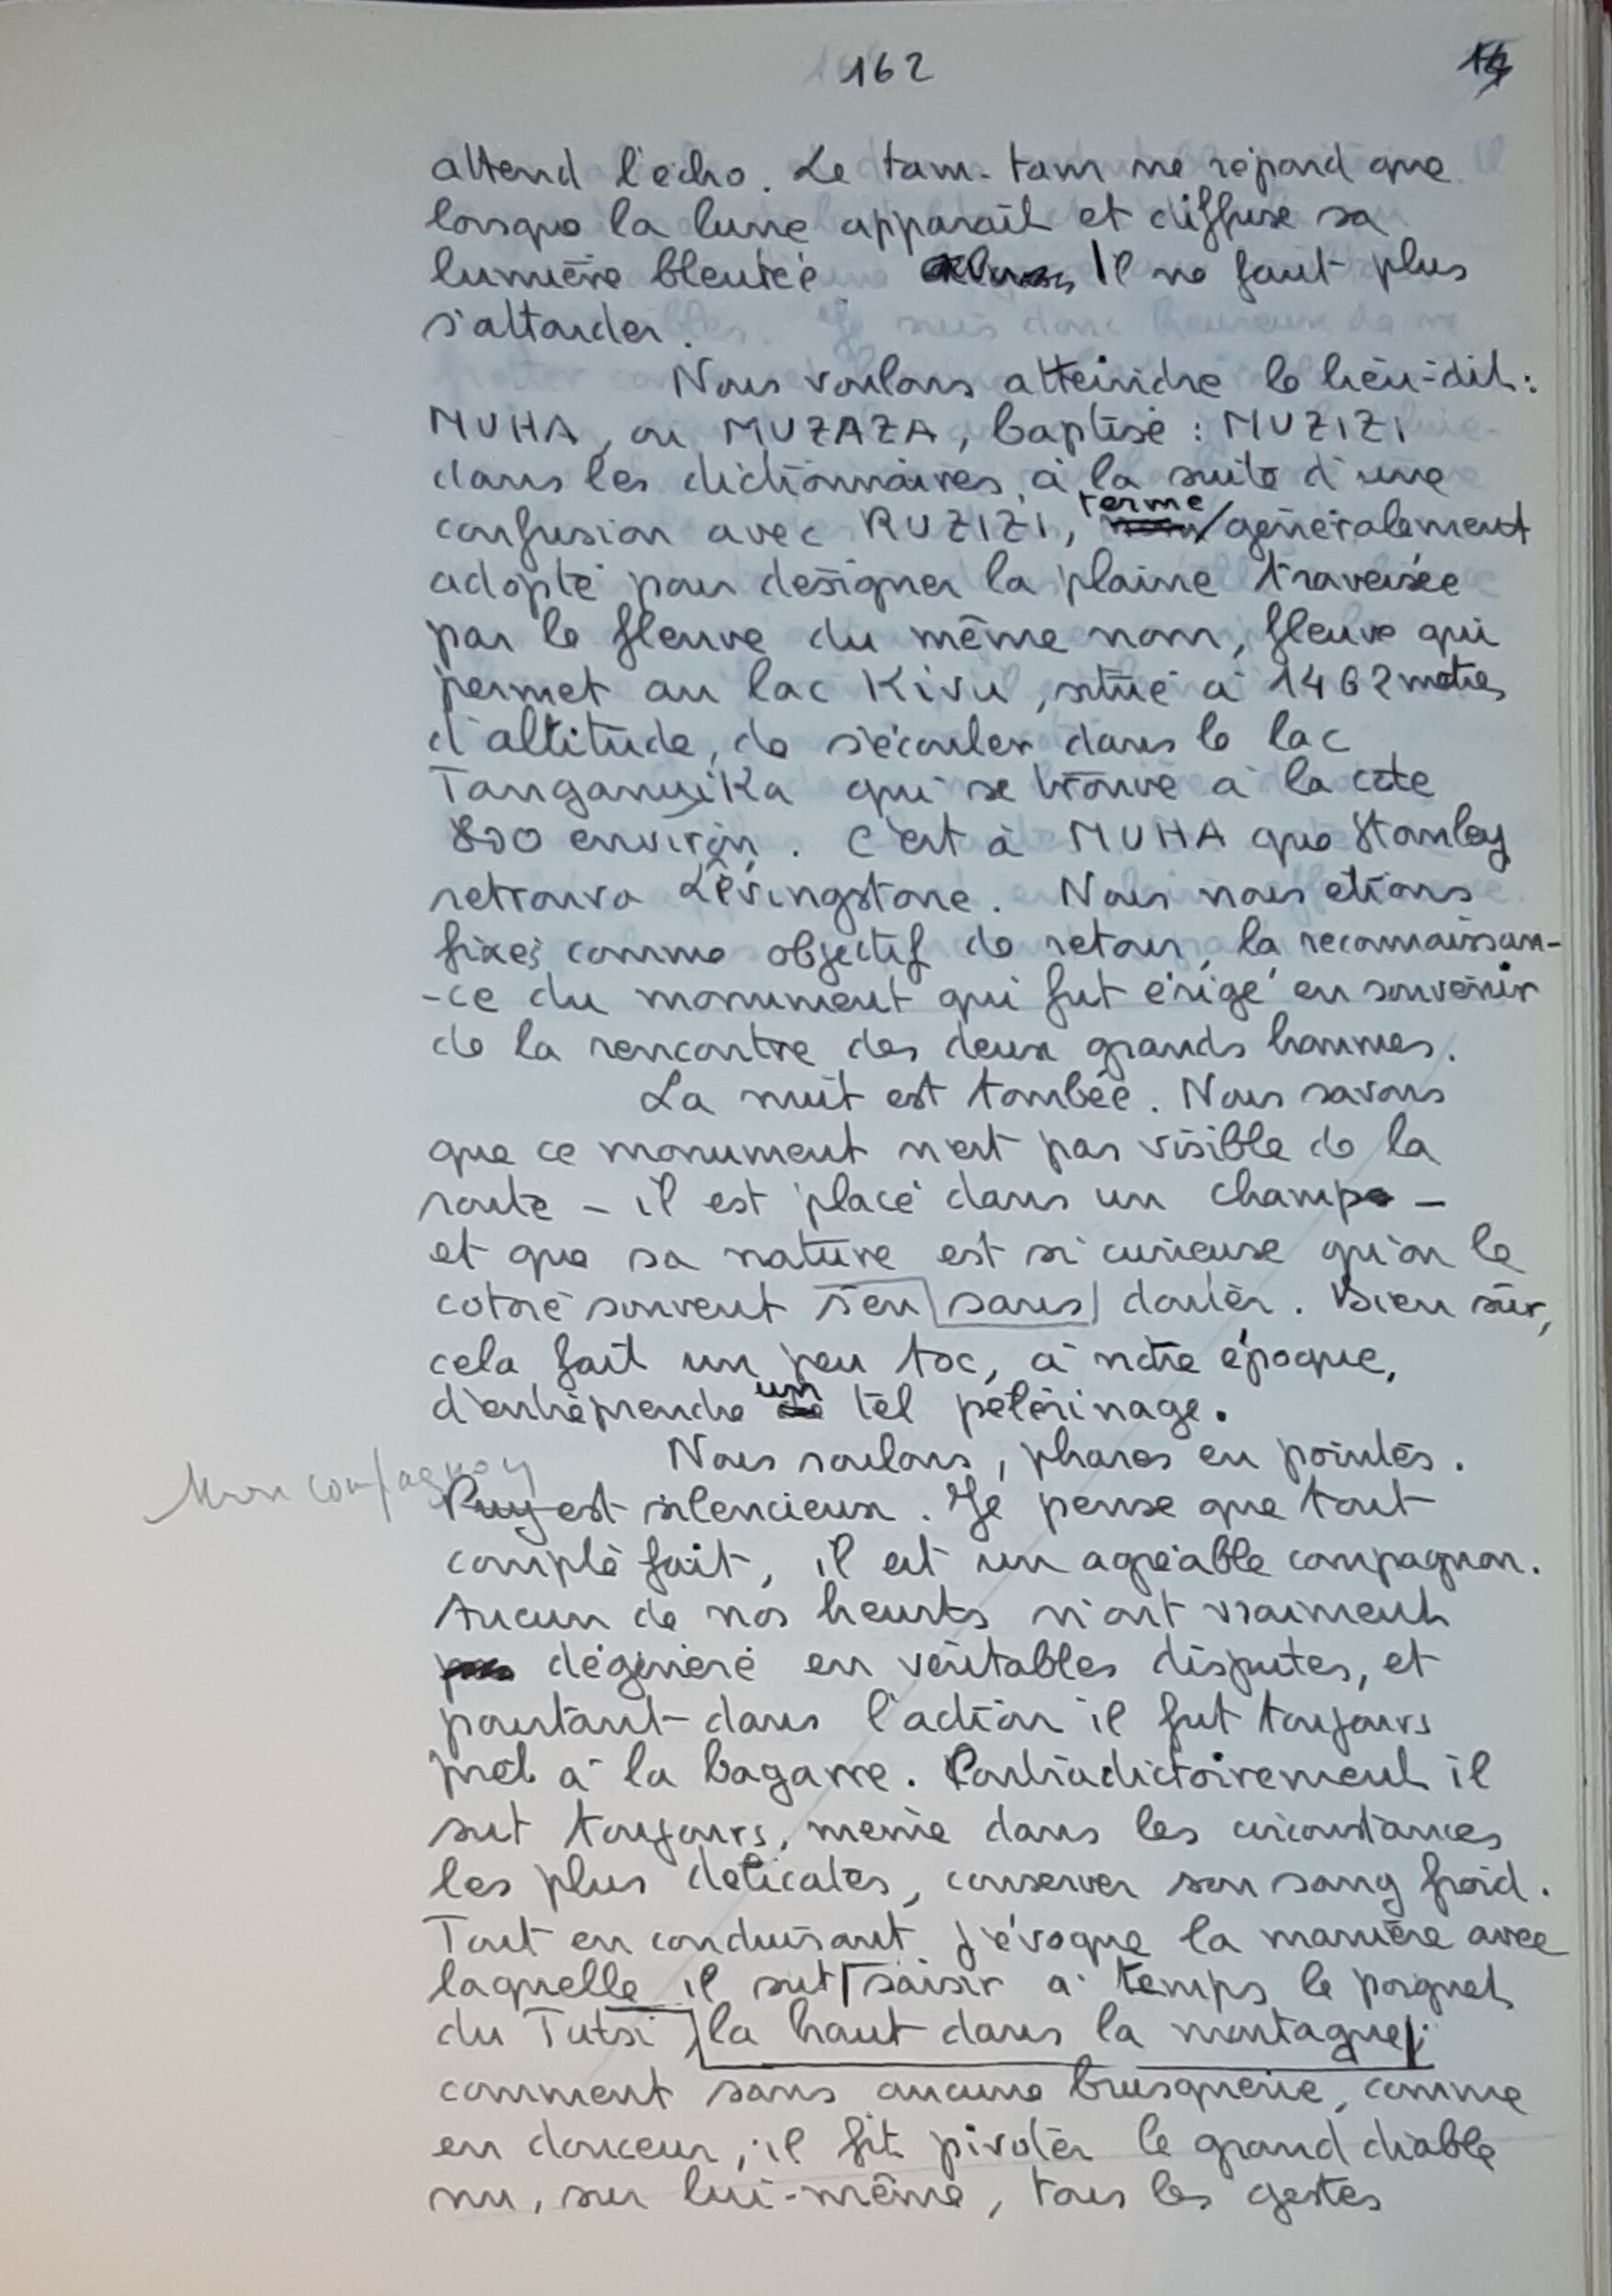 162
attend l'écho. Le tam-tam ne répond que
lorsque la lune apparaît et diffuse sa
lumière bleutée Il ne faut plus
s'attarder.
Nous voulons atteindre le lieu-dit :
MUHA, ou MUZAZA, baptisé : MUZIZI
dans les dictionnaires, à la suite d'une
confusion avec RUZIZI, terme généralement
adopté pour désigner la plaine traversée
par le fleuve du même nom, fleuve qui
permet au lac Kivu, situé à 1462 mètres
d'altitude, de s'écouler dans le lac
Tanganyika qui se trouve à la côte
800 environ. C'est à MUHA que Stanley
retrouva Livingstone. Nous nous étions
fixés comme objectif de retour, la reconnaissan-
-ce du monument qui fut érigé en souvenir
de la rencontre des deux grands hommes.
La nuit est tombée. Nous savons
que ce monument n'est pas visible de la
route - il est placé dans un champ -
et que sa nature est si curieuse qu'on le
cotoie souvent s'en sans douter. Bien sûr,
cela fait un peu toc, à notre époque,
d'entreprendre un tel pélérinage.
Nous roulons, phares en pointés.
Mon compagnon
Puy est silencieux. Je pense que tout
compte fait, il est un agréable compagnon.
Aucun de nos heurts n'ont vraiment
pas dégénéré en véritables disputes, et
pourtant dans l'action il fut toujours
prêt à la bagarre. Contradictoirement il
sut toujours, même dans les circonstances
les plus délicates, conserver son sang froid.
Tout en conduisant j'évoque la manière avec
laquelle il sut saisir à temps le poignet
du Tutsi la haut dans la montagne ;
comment sans aucune brusquerie, comme
en douceur, il fit pivoter le grand diable
nu, sur lui-même, tous les gestes